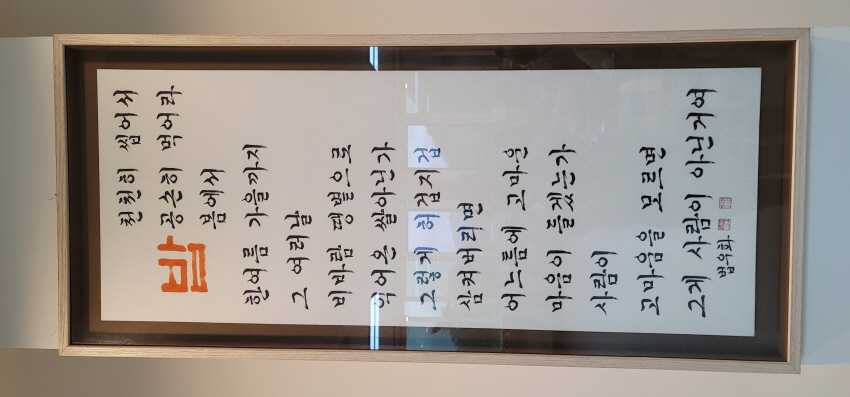 밥
천천히 씹어서
공손히 먹어라
봄에서
한여름 가을까지
그 여러날
비바람 땡볕으로
익어온 쌀아닌가
그렇게 허겁지겁
삼켜버리면
어느틈에 고마운
마음이 들겠는가
사람이
고마움을 모르면
그게 사람이 아닌거여
법우화